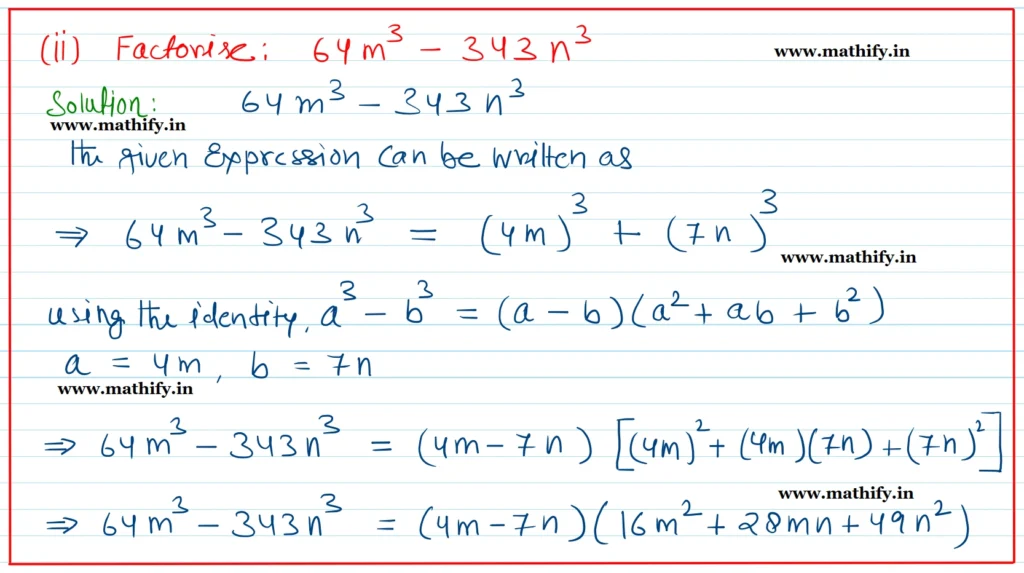 (ii) Factorise: 64m³ - 343n³ www.mathify.in
Solution: 64m³ - 343n³
www.mathify.in
The given Expression can be written as
⇒ 64m³ - 343n³ = (4m)³ + (7n)³
www.mathify.in
using the identity, a³ - b³ = (a - b)(a² + ab + b²)
a = 4m, b = 7n
www.mathify.in
⇒ 64m³ - 343n³ = (4m - 7n) [(4m)² + (4m)(7n) + (7n)²]
www.mathify.in
⇒ 64m³ - 343n³ = (4m - 7n)(16m² + 28mn + 49n²)